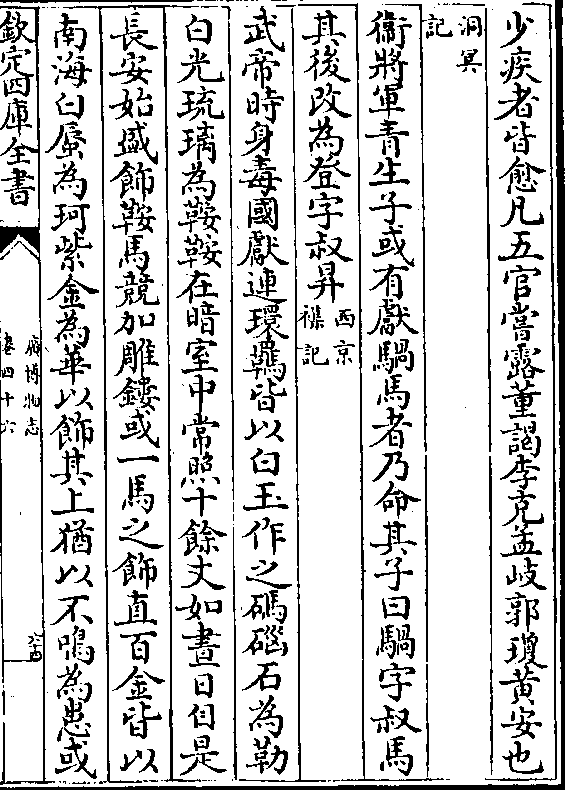 少疾者皆愈凡五官嘗露董謁李克孟岐郭瓊黄安也
洞冥
記
衞將軍青生子或有獻騧馬者乃命其子曰騧字叔馬
其後改為登字叔昇
西京
襍記
武帝時身毒國獻連環羈皆以白玉作之碼碯石為勒
白光琉璃為鞍鞍在暗室中常照十餘丈如晝日自是
長安始盛飾鞍馬競加雕鏤或一馬之飾直百金皆以
南海白蜃為珂紫金為華以飾其上猶以不鳴為患或
欽定四庫全書
廣博物志
卷四十六
六十四